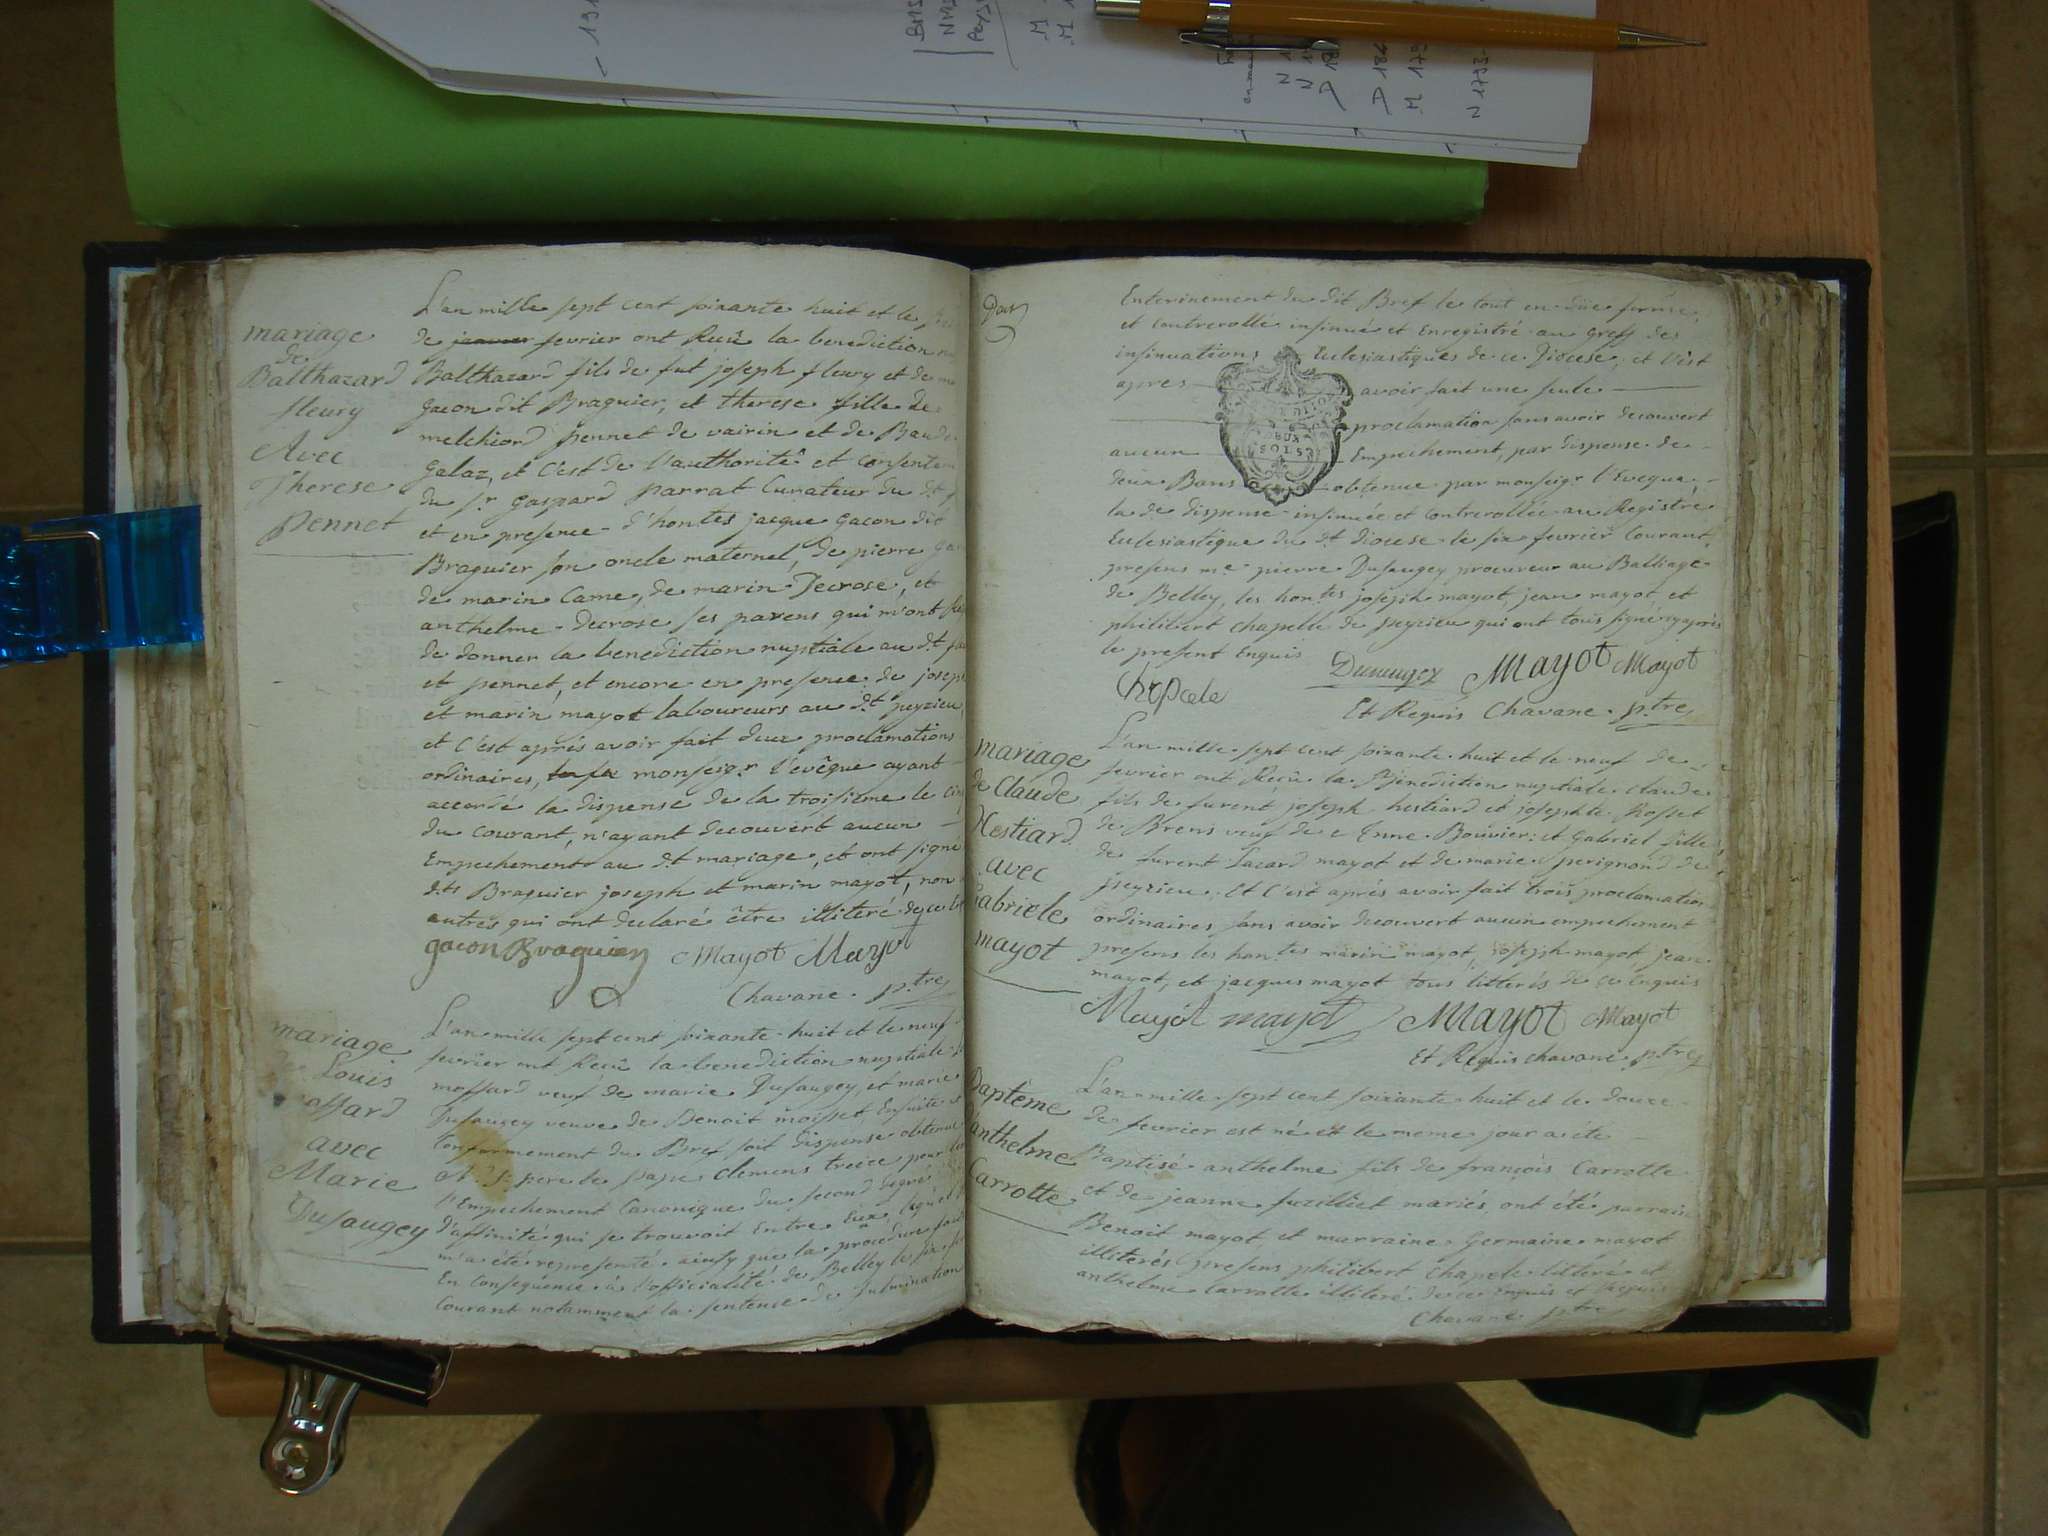 mariage
de
Balthazard
fleury
Avec
Therese
Pennet
L'an mille sept cent soixante huit et le
de janvier fevrier ont Reçû la benediction
Balthazard fils de fut joseph fleury et de
Gacon dit Braguier, et therese fille de
melchiord pennet de vairin et de
Galaz, et C'est de l'authorité et
du sr. Gaspard parrat Curateur du dt
et en presence d'hontes jacque Gacon dit
Braguier son oncle maternel, de pierre
de marin Came, de marin Decrose, et
anthelme Decrose ses parens qui m'ont
de donner la benediction nuptiale au dt
et pennet, et encore en presence de joseph
et marin mayot laboureurs au dt peyzieu,
et C'est aprés avoir fait deux proclamations
ordinaires, monseigr l'evêque ayant
accordé la dispense de la troisiéme le
du Courant, n'ayant decouvert aucun
Empechement au dt mariage, et ont signé
dts Braguier joseph et marin mayot, non
autres qui ont declaré être illiteré de ce
gacon Braguier Mayot Mayot
Chavane ptre
mariage
Louis
ossard
avec
Marie
Dusaugey
L'an mille sept cent soixante huit et le neuf
fevrier ont Reçû la benediction nuptiale
mossard veuf de marie Dusaugey, et marie
Dusaugey veuve de Benoit moisset, Ensuite
Conformement du Bref soit dispense obtenue
N. St pere le pape Clemens treize pour
l'Empechement Canonique du second degré
d'affinité qui se trouvoit Entre Eux, lequel
m'a été representé ainsy que la procedure
En Consequence à l'officialité de Belley le six
Courant notamment la sentence de fulmination
Enterinement du dit Bref le tout en düe forme,
et Controrollé insinué et Enregistré au Greff des
insinuations Eclesiastiques de ce Diocese, et C'est
apres avoir fait une seule
proclamation sans avoir decouvert
aucun Empechement, par dispense de
deux Bans obtenue par monseigr l'Eveque,
la de dispense insinuée et Controrollée au Registre
Eclesiastique du dt diocese le six fevrier Courant,
presens me pierre Dusaugey procureur au Balliage
de Belley, les hontes joseph mayot, jean mayot et
philibert Chapelle de peyzieu qui ont tous signé cy après
le present Enquis Dusaugey Mayot Mayot
Chapele
Et Requis Chavane ptre
mariage
de Claude
Hestiard
avec
Gabriele
mayot
L'an mille sept cent soixante huit et le neuf de
fevrier ont Reçû la Bénediction nuptiale claude
fils de furent joseph hestiard et josephte Rosset
de Brens veuf de Anne Bouvier: et Gabriel fille
de furent Lazard mayot et de marie perignond de
peyzieu. Et C'est aprés avoir fait trois proclamation
ordinaires sans avoir decouvert aucun empechement
presens les hontes marin mayot, joseph mayot, jean
mayot, et jacques mayot tous litterés de ce Enquis
Mayot mayot Mayot Mayot
Et Requis chavane ptre
Baptême
anthelme
Carrotte
L'an mille sept cent soixante huit et le douze
de fevrier est né et le meme jour a été
Baptisé anthelme fils de françois Carrotte
et de jeanne fuzilliet mariés, ont été parrain
Benoit mayot et marraine Germaine mayot
illiterés presens philibert Chapele litteré et
anthelme Carrotte illiteré de ce enquis et Requis
Chavane ptre